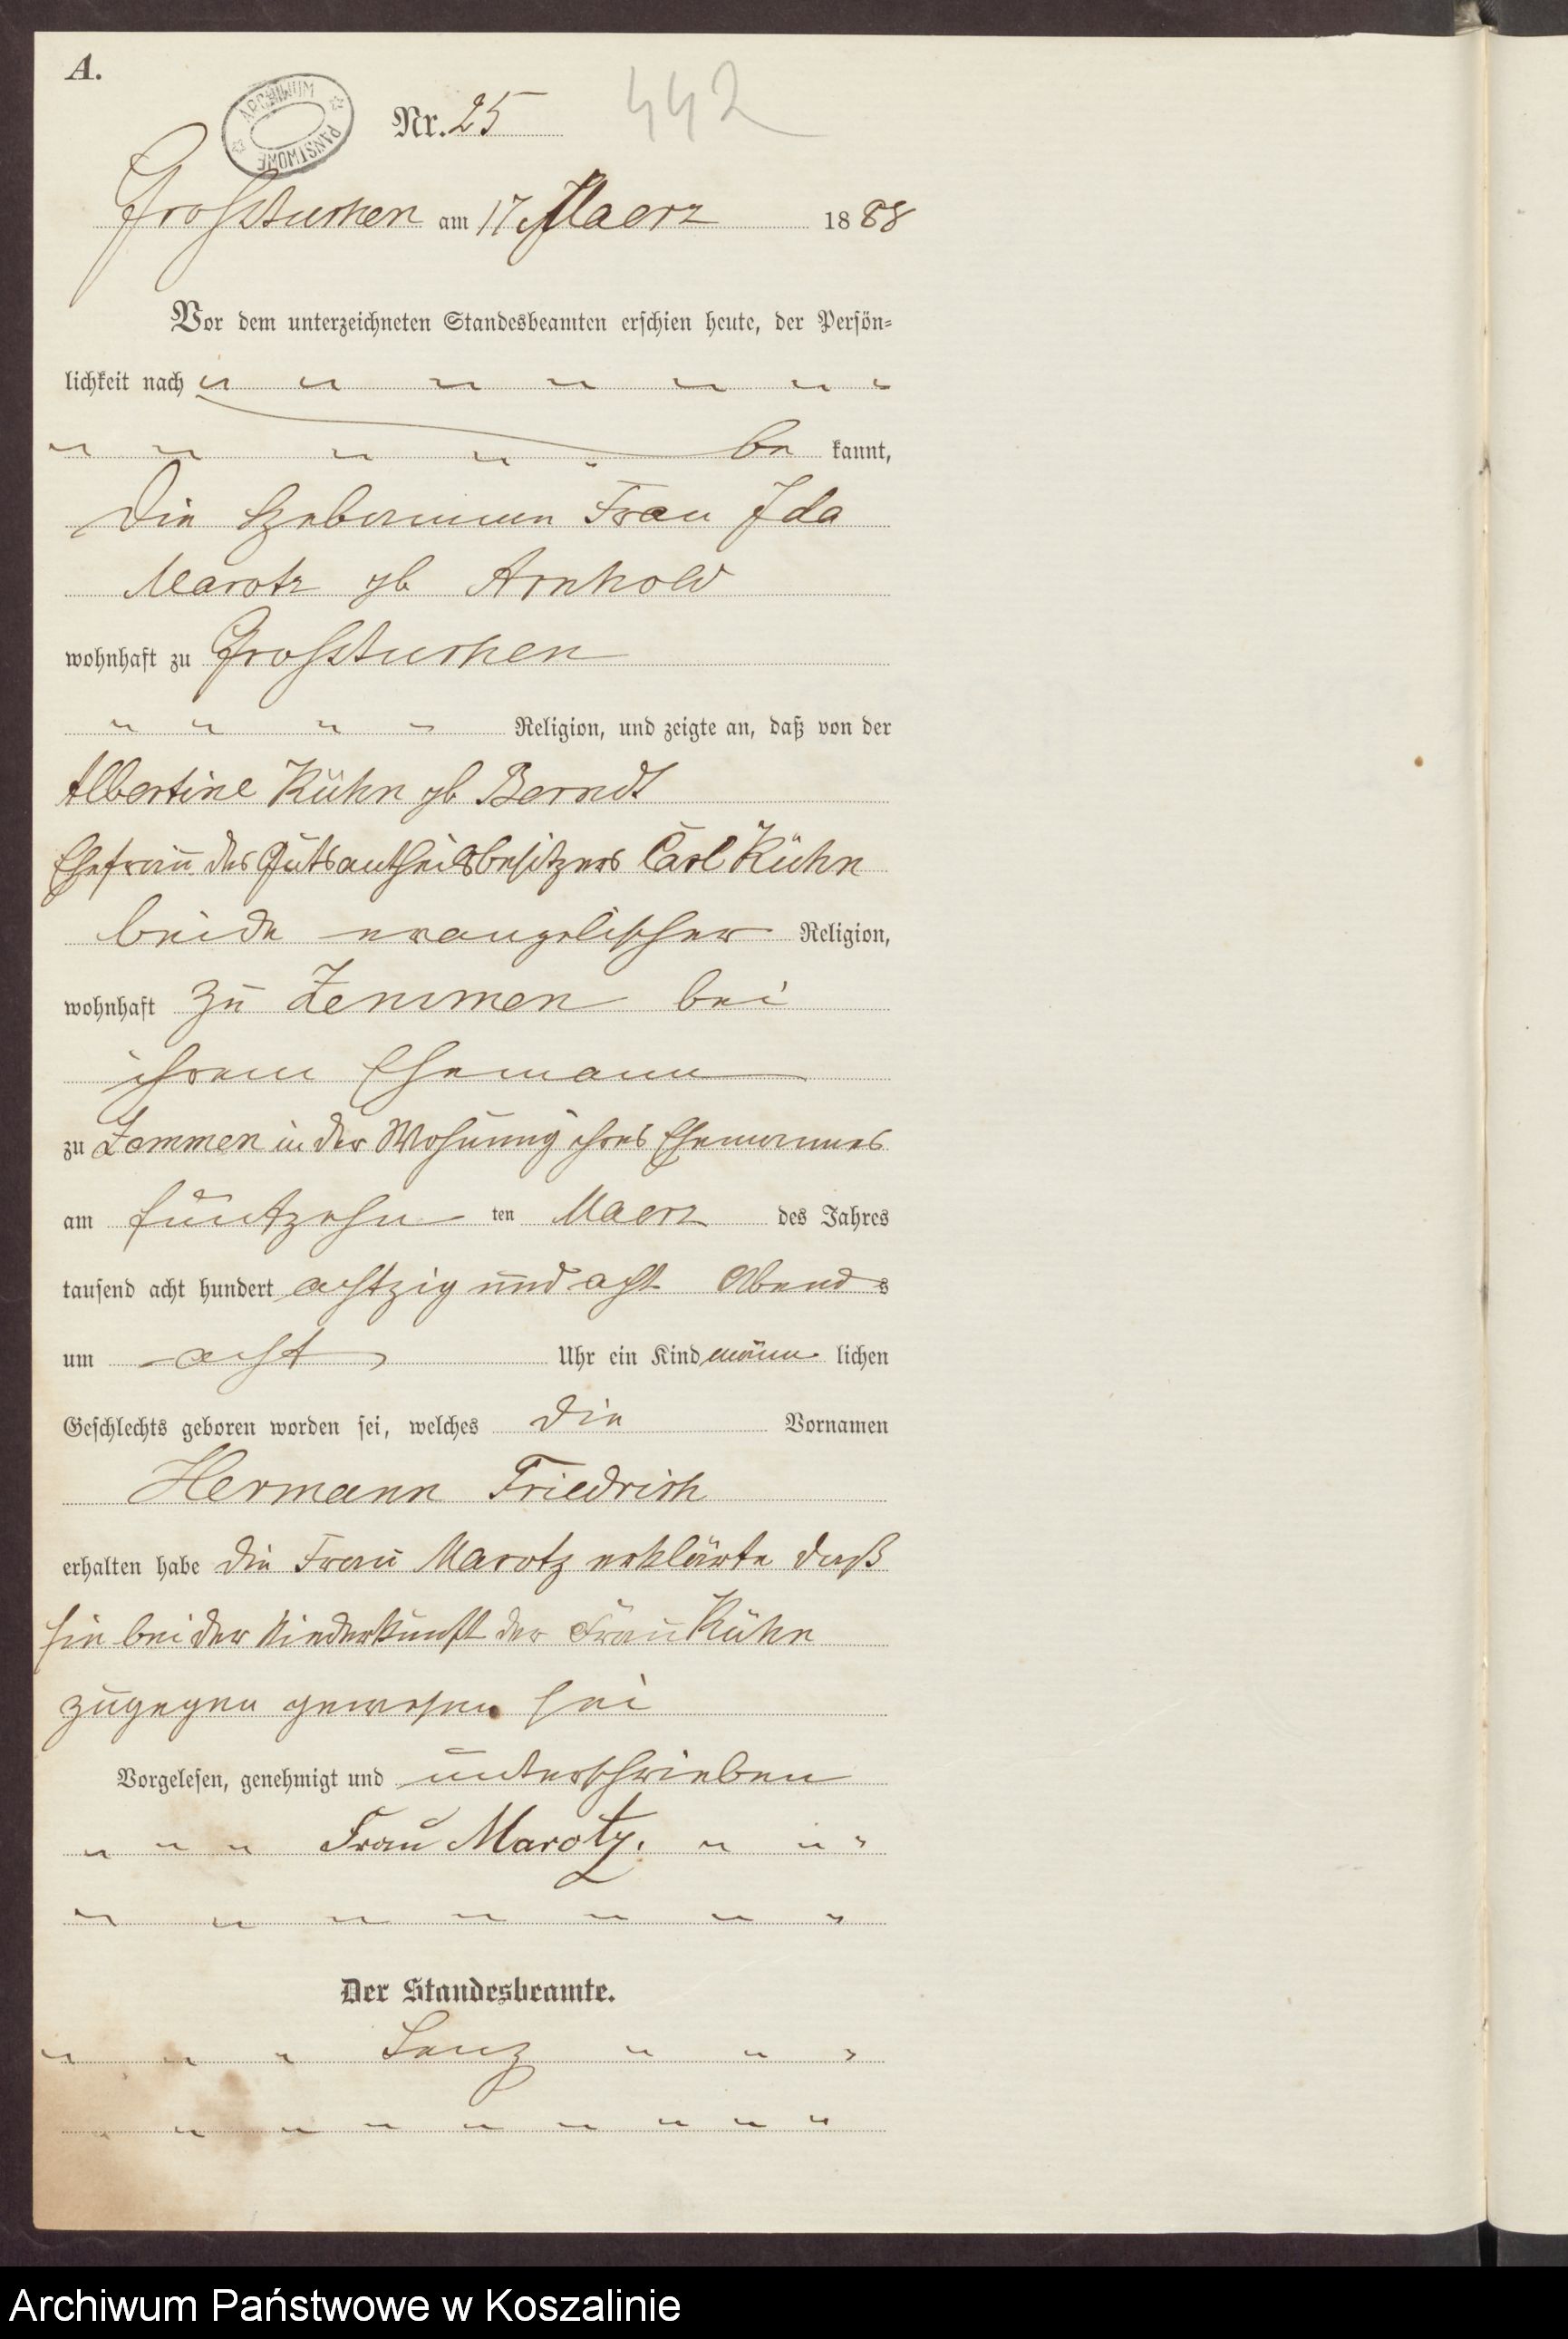 A.
ARCHIWUM PAŃSTWOWE
Nr. 25
442
Grosstuchen am 17 Maerz 1888
Vor dem unterzeichneten Standesbeamten erschien heute, der Persön-
lichkeit nach
be kannt,
die Hebamme Frau Ida
Marotz gb Arnhold
wohnhaft zu Grosstuchen
Religion, und zeigte an, daß von der
Albertine Kühn gb Berndt
Ehefrau des Gutsantheilsbesitzers Carl Kühn
beide evangelischer Religion,
wohnhaft zu Zemmen bei
ihrem Ehemann
zu Zemmen in der Wohnung ihres Ehemannes
am fünfzehn ten Maerz des Jahres
tausend acht hundert achtzig und acht Abends
um acht Uhr ein Kind männ lichen
Geschlechts geboren worden sei, welches die Vornamen
Hermann Friedrich
erhalten habe die Frau Marotz erklärte daß
sie bei der Niederkunft der Frau Kühn
zugegen gewesen sei
Vorgelesen, genehmigt und unterschrieben
Frau Marotz.
Der Standesbeamte.
Lenz
Archiwum Państwowe w Koszalinie